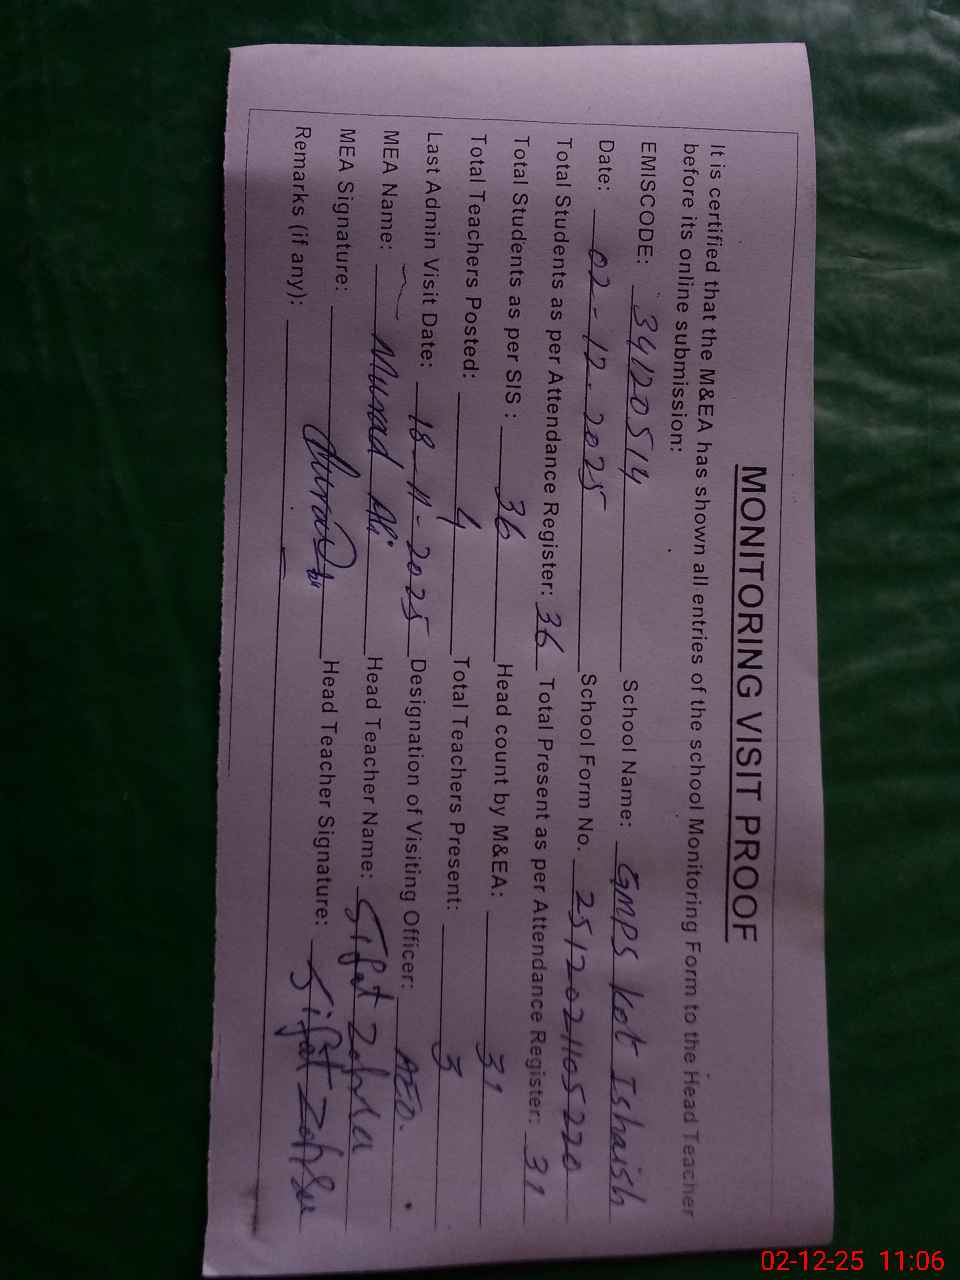 MONITORING VISIT PROOF
It is certified that the M&EA has shown all entries of the school Monitoring Form to the Head Teacher
before its online submission:
EMISCODE: 34120514 School Name: GMPS Kot Ishaish
Date: 02-12-2025 School Form No. 2512021105220
Total Students as per Attendance Register: 36 Total Present as per Attendance Register: 31
Total Students as per SIS : 36 Head count by M&EA: 31
Total Teachers Posted: 4 Total Teachers Present: 3
Last Admin Visit Date: 18-11-2025 Designation of Visiting Officer: AEO.
MEA Name: Murad Ali Head Teacher Name: Sifat Zahra
MEA Signature: Head Teacher Signature: Sifat Zahra
Remarks (if any):
02-12-25 11:06